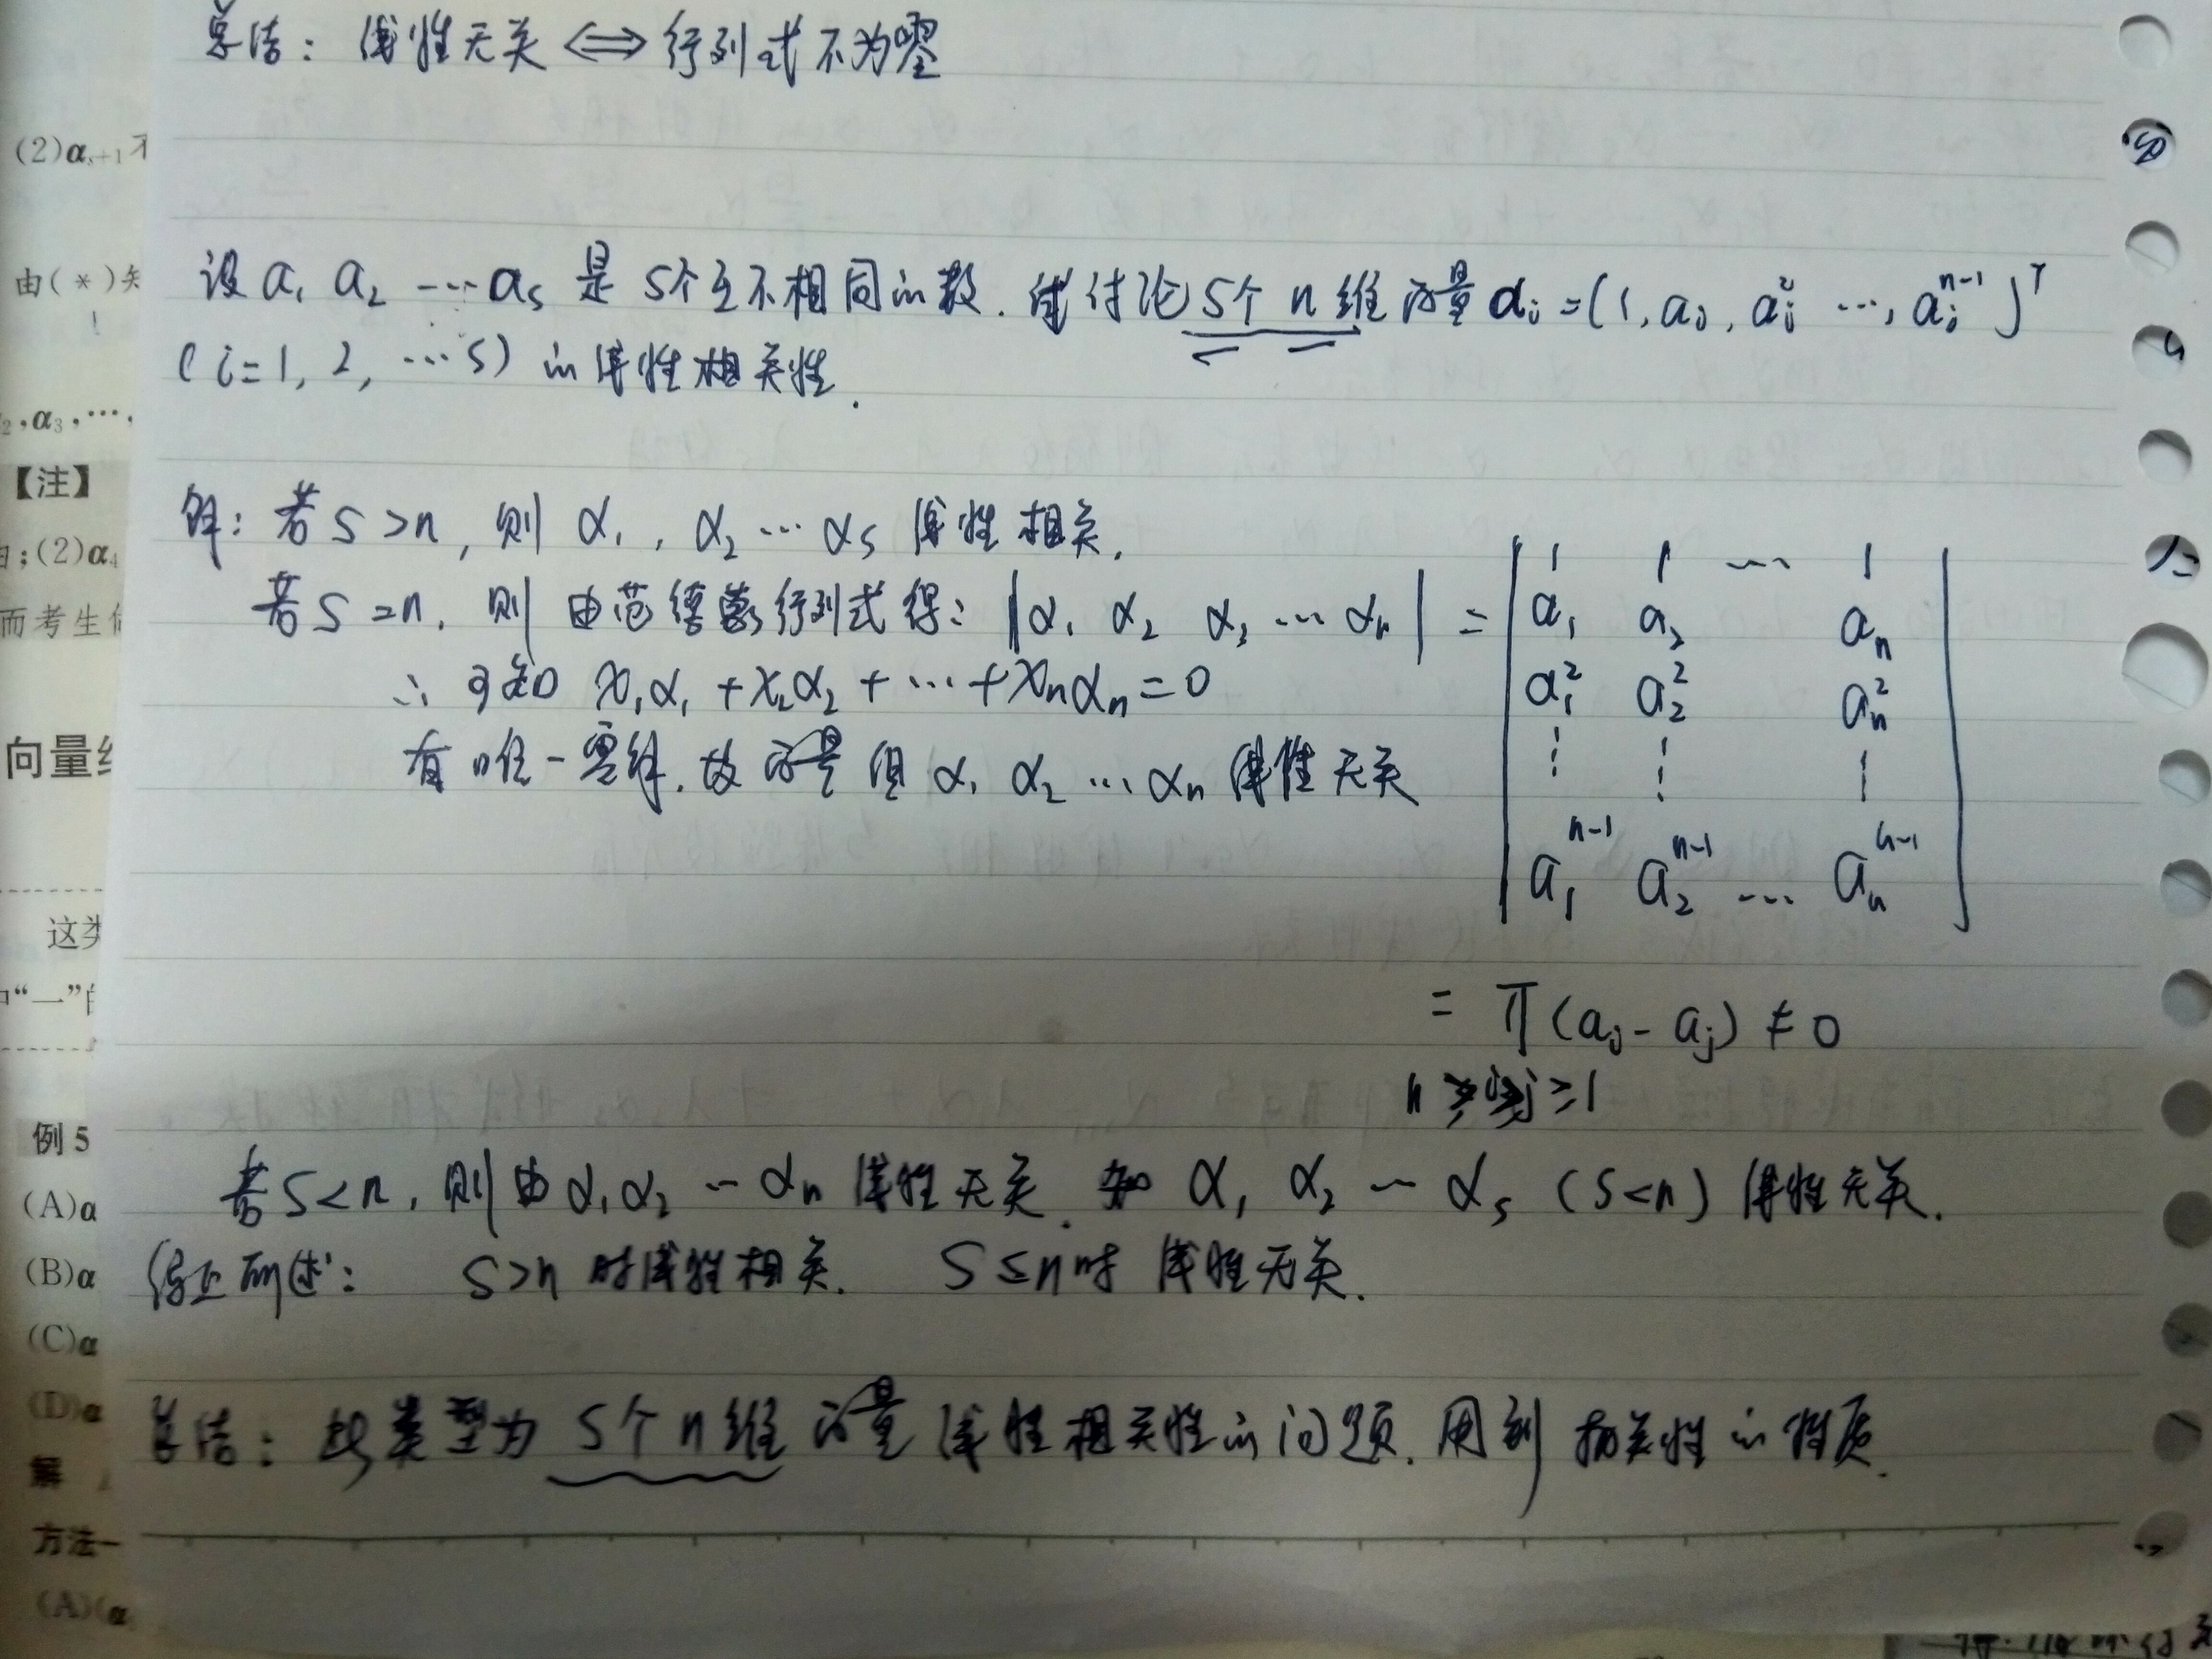 总结：线性无关 ⇔ 行列式不为零
设 a₁ a₂ … aₛ 是 s个互不相同的数．试讨论 s个 n 维 向量 αᵢ=(1, aᵢ, aᵢ² …, aᵢⁿ⁻¹)ᵀ
(i=1, 2, …s) 的线性相关性．
解：若 s>n，则 α₁, α₂ … αₛ 线性相关．
若 s=n．则 由范德蒙行列式得： |α₁ α₂ α₃ … αₙ| =
| 1 1 … 1 |
| a₁ a₂ aₙ |
| a₁² a₂² aₙ² |
| ⋮ ⋮ ⋮ |
| a₁ⁿ⁻¹ a₂ⁿ⁻¹ … aₙⁿ⁻¹ |
= ∏ (aᵢ - aⱼ) ≠ 0
n ≥ ≥ 1
∴ 可知 x₁α₁ + x₂α₂ + … + xₙαₙ = 0
有唯一零解．故 向量 组 α₁ α₂ … αₙ 线性无关
若 s<n．则由 α₁ α₂ … αₙ 线性无关．知 α₁ α₂ … αₛ (s<n) 线性无关．
综上所述： s>n 时线性相关． s≤n时 线性无关．
总结： 类型为 s个 n维 向量 线性相关性的问题．用到 相关性的性质．
(2)αₛ₊₁不
由(*)矢
₂,α₃,…,
【注】
;(2)α
而考生
向量
这类
“一”
例 5
(A)α
(B)α
(C)α
(D)α
解
方法一
(A)(α